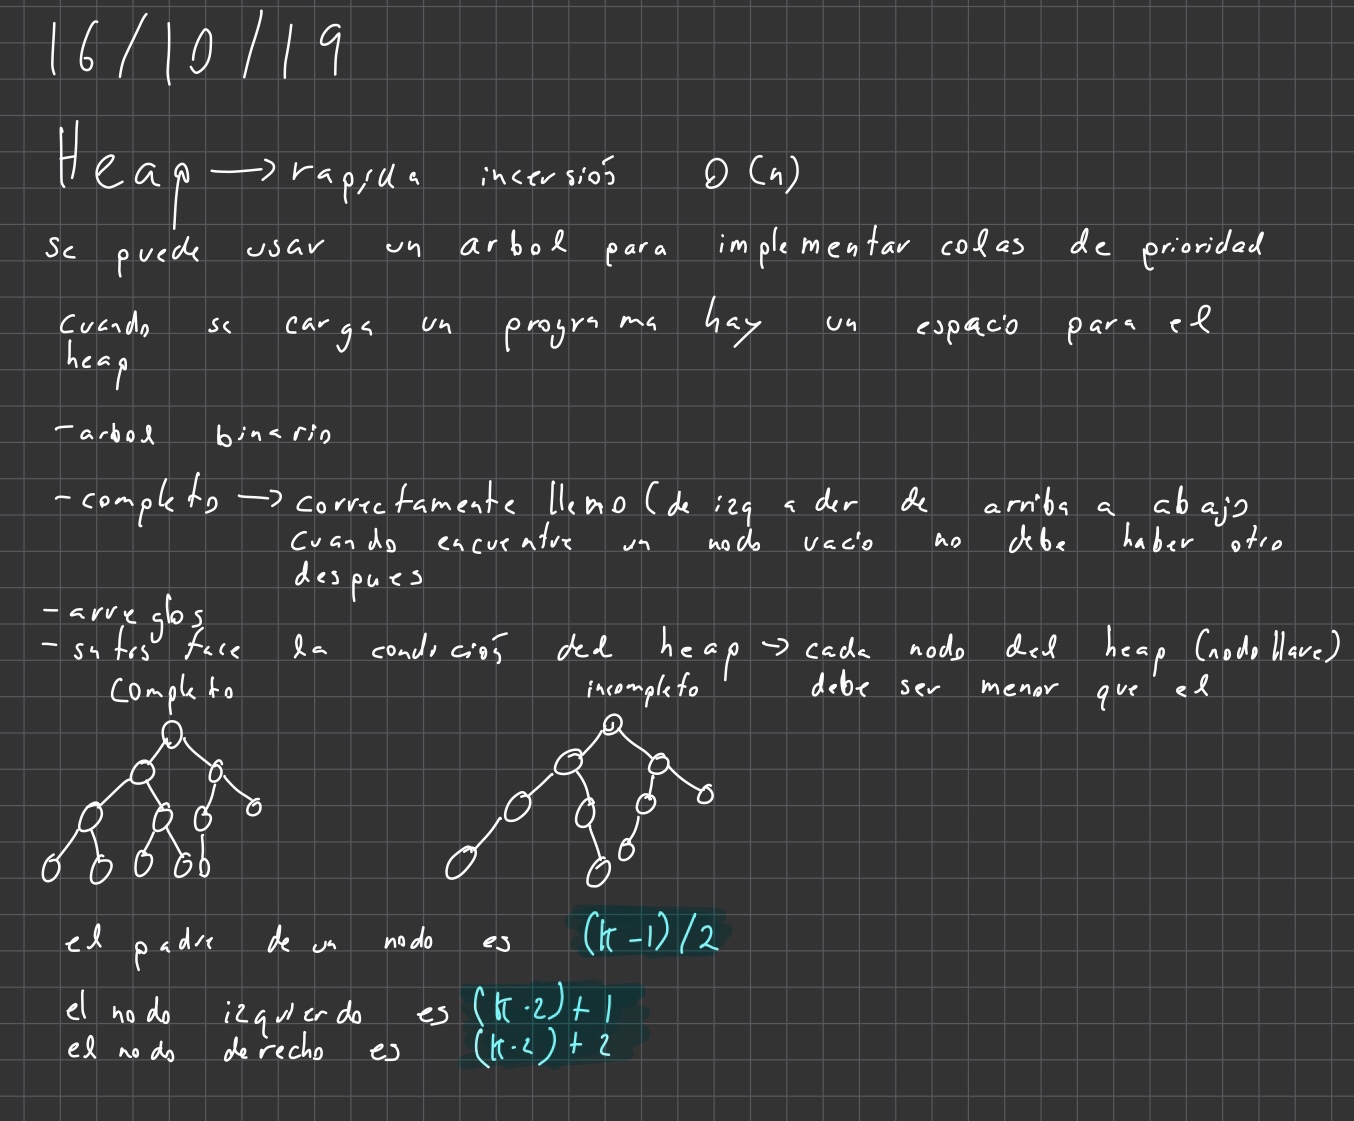 16/10/19
Heap → rapida incersioń O(n)
se puede usar un arbol para implementar colas de prioridad
Cuando se carga un programa hay un espacio para el
heap
- arbol binario
- completo → correctamente lleno (de izq a der de arriba a abajo
cuando encuentre un nodo vacio no debe haber otro
despues
- arreglos
- satisface la condicioń del heap → cada nodo del heap (nodo llave)
debe ser menor que el
Completo incompleto
el padre de un nodo es (k-1)/2
el nodo izquierdo es (k·2)+1
el nodo derecho es (k·2)+2